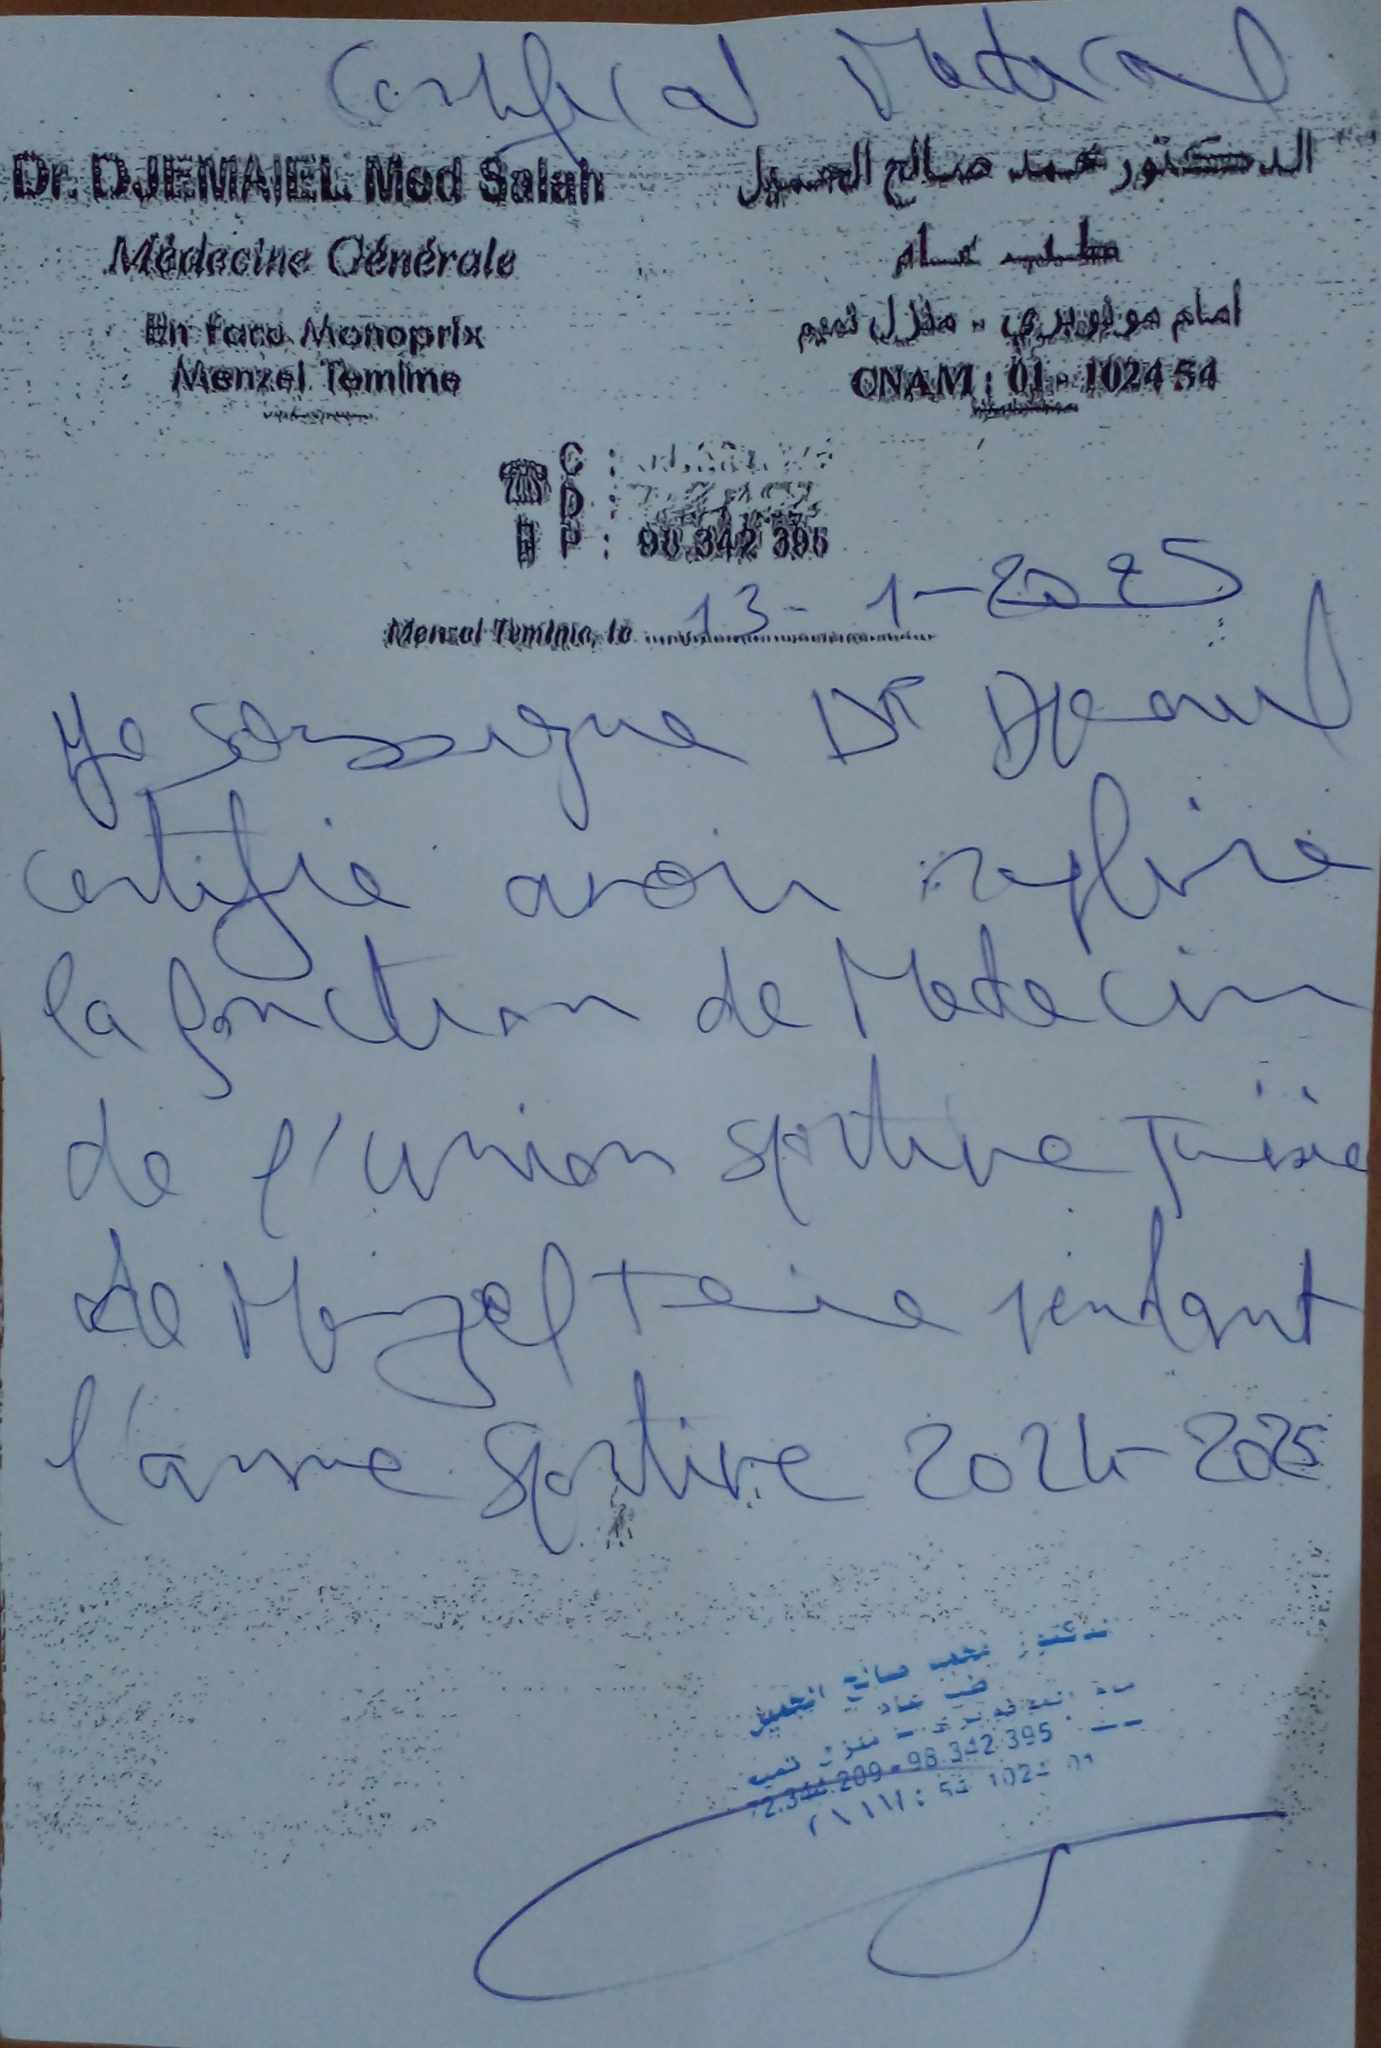 Certifical Medical
Dr. DJEMAIEL Med Salah
الدكتور محمد صالح الجميل
Médecine Générale
طب عام
En face Monoprix
أمام مونوبري - منزل تميم
Menzel Temime
CNAM : 01 - 1024 54
C :
D :
P : 98 342 395
Menzel Temime, le 13-1-2025
Je soussigne Dr
certifie avoir
la fonction de Medecin
de l'Union Sportive
de Menzel pendant
l'anne sportive 2024-2025
دكتور محمد صالح الجميل
طب عام
منزل تميم
72.344.209 - 98.342.395
54 1024 01